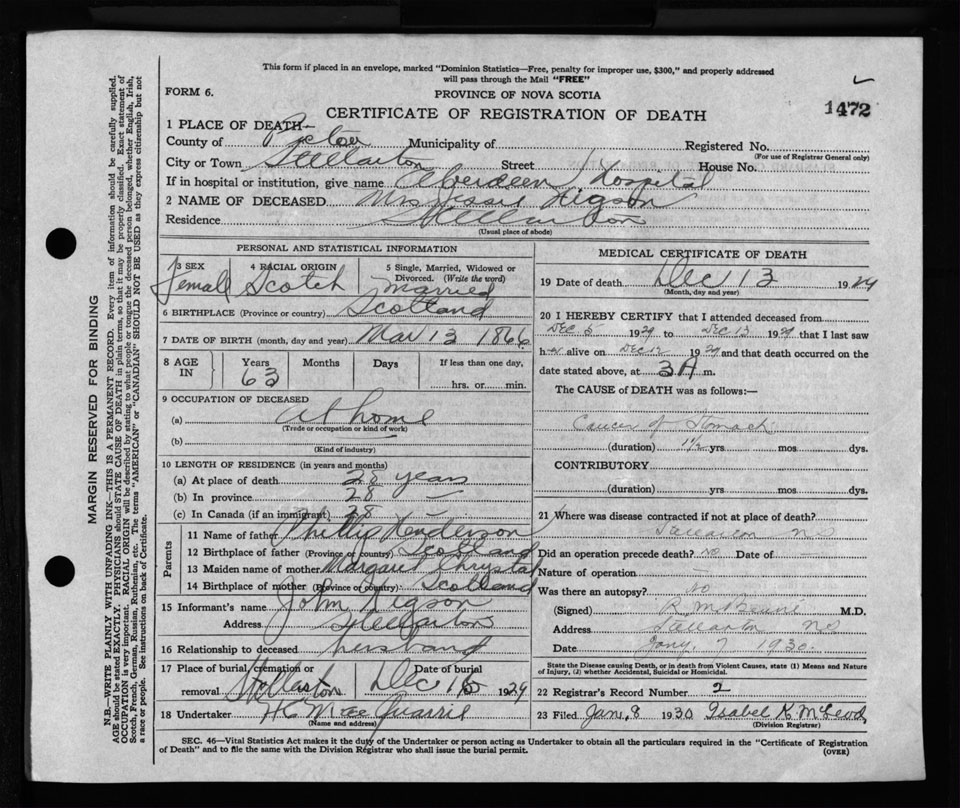 This form if placed in an envelope, marked "Dominion Statistics—Free, penalty for improper use, $300," and properly addressed
will pass through the Mail "FREE"
FORM 6.
PROVINCE OF NOVA SCOTIA
1472
CERTIFICATE OF REGISTRATION OF DEATH
1 PLACE OF DEATH—
County of Pictou Municipality of Registered No.
(For use of Registrar General only)
City or Town Stellarton Street House No.
If in hospital or institution, give name Aberdeen Hospital
2 NAME OF DECEASED Mrs Jessie Higson
Residence Stellarton
(Usual place of abode)
PERSONAL AND STATISTICAL INFORMATION
3 SEX 4 RACIAL ORIGIN 5 Single, Married, Widowed or
Divorced. (Write the word)
Female Scotch married
6 BIRTHPLACE (Province or country) Scotland
7 DATE OF BIRTH (month, day and year) Mar 13 1866
8 AGE IN Years Months Days If less than one day,
63 hrs. or min.
9 OCCUPATION OF DECEASED
(a) at home
(Trade or occupation or kind of work)
(b)
(Kind of industry)
10 LENGTH OF RESIDENCE (in years and months)
(a) At place of death 28 years
(b) In province 28 —
(c) In Canada (if an immigrant) 28 —
Parents
11 Name of father Phillip Henderson
12 Birthplace of father (Province or country) Scotland
13 Maiden name of mother Margaret Chrystal
14 Birthplace of mother (Province or country) Scotland
15 Informant's name John Higson
Address Stellarton
16 Relationship to deceased husband
17 Place of burial, cremation or Date of burial
removal Stellarton Dec 15 1929
18 Undertaker H C MacQuarrie
(Name and address)
MEDICAL CERTIFICATE OF DEATH
19 Date of death Dec 13 1929
(Month, day and year)
20 I HEREBY CERTIFY that I attended deceased from
Dec 5 1929 to Dec 13 1929 that I last saw
her alive on Dec 12 1929 and that death occurred on the
date stated above, at 3 A m.
The CAUSE of DEATH was as follows:—
Cancer of Stomach
(duration) 1½ yrs mos. dys.
CONTRIBUTORY
(duration) yrs mos. dys.
21 Where was disease contracted if not at place of death?
Stellarton NS
Did an operation precede death? No Date of
Nature of operation —
Was there an autopsy? No
(Signed) M.D.
Address Stellarton NS
Date Jany. 7 1930.
State the Disease causing Death, or in death from Violent Causes, state (1) Means and Nature
of Injury, (2) whether Accidental, Suicidal or Homicidal.
22 Registrar's Record Number 2
23 Filed Jan. 8 1930 Isabel K McLeod
(Division Registrar)
SEC. 46—Vital Statistics Act makes it the duty of the Undertaker or person acting as Undertaker to obtain all the particulars required in the "Certificate of Registration
of Death" and to file the same with the Division Registrar who shall issue the burial permit.
(OVER)
MARGIN RESERVED FOR BINDING
N.B.—WRITE PLAINLY WITH UNFADING INK—THIS IS A PERMANENT RECORD. Every item of information should be carefully supplied.
AGE should be stated EXACTLY. PHYSICIANS should STATE CAUSE OF DEATH in plain terms, so that it may be properly classified. Exact statement of
OCCUPATION is very important. RACIAL ORIGIN will be described by stating to what people or tongue the deceased person belonged, whether English, Irish,
Scotch, French, German, Russian, Ruthenian, etc. The terms "AMERICAN" or "CANADIAN" SHOULD NOT BE USED as they express citizenship but not
a race or people. See instructions on back of Certificate.